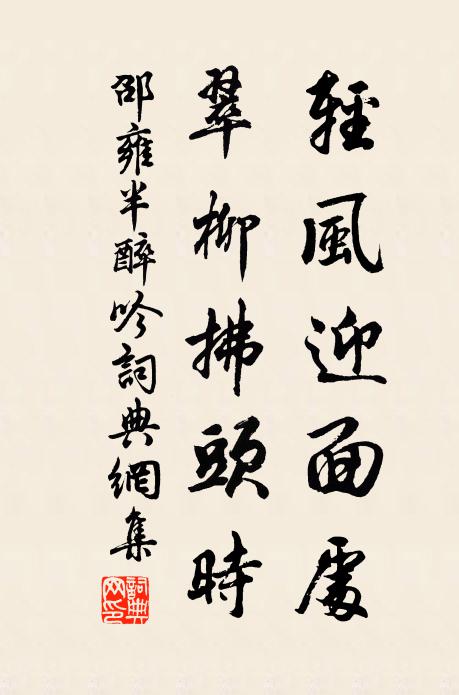 輕風迎面處
翠柳拂頭時
邵雍半醉吟詞典網集
詞典网印